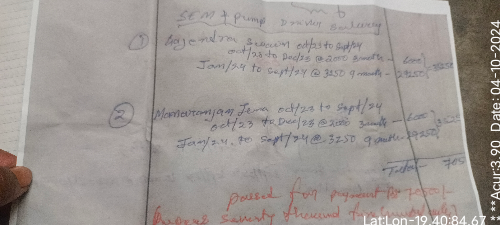 SEM & Pump Driver Salary
① Gajendra Swain oct/23 to Sept/24
oct/23 to Dec/23 @ 2000 3 month - 6000
Jan/24 to Sept/24 @ 3250 9 month - 29250
② Manoranjan Jema oct/23 to Sept/24
oct/23 to Dec/23 @ 2000 3 month - 6000
Jan/24 to Sept/24 @ 3250 9 month - 29250
Total - 705
passed for payment Rs 70500/-
Rupees seventy thousand five hundred only
Lat:Lon-19.40:84.67
**Acur:3.90 Date: 04-10-2024 **